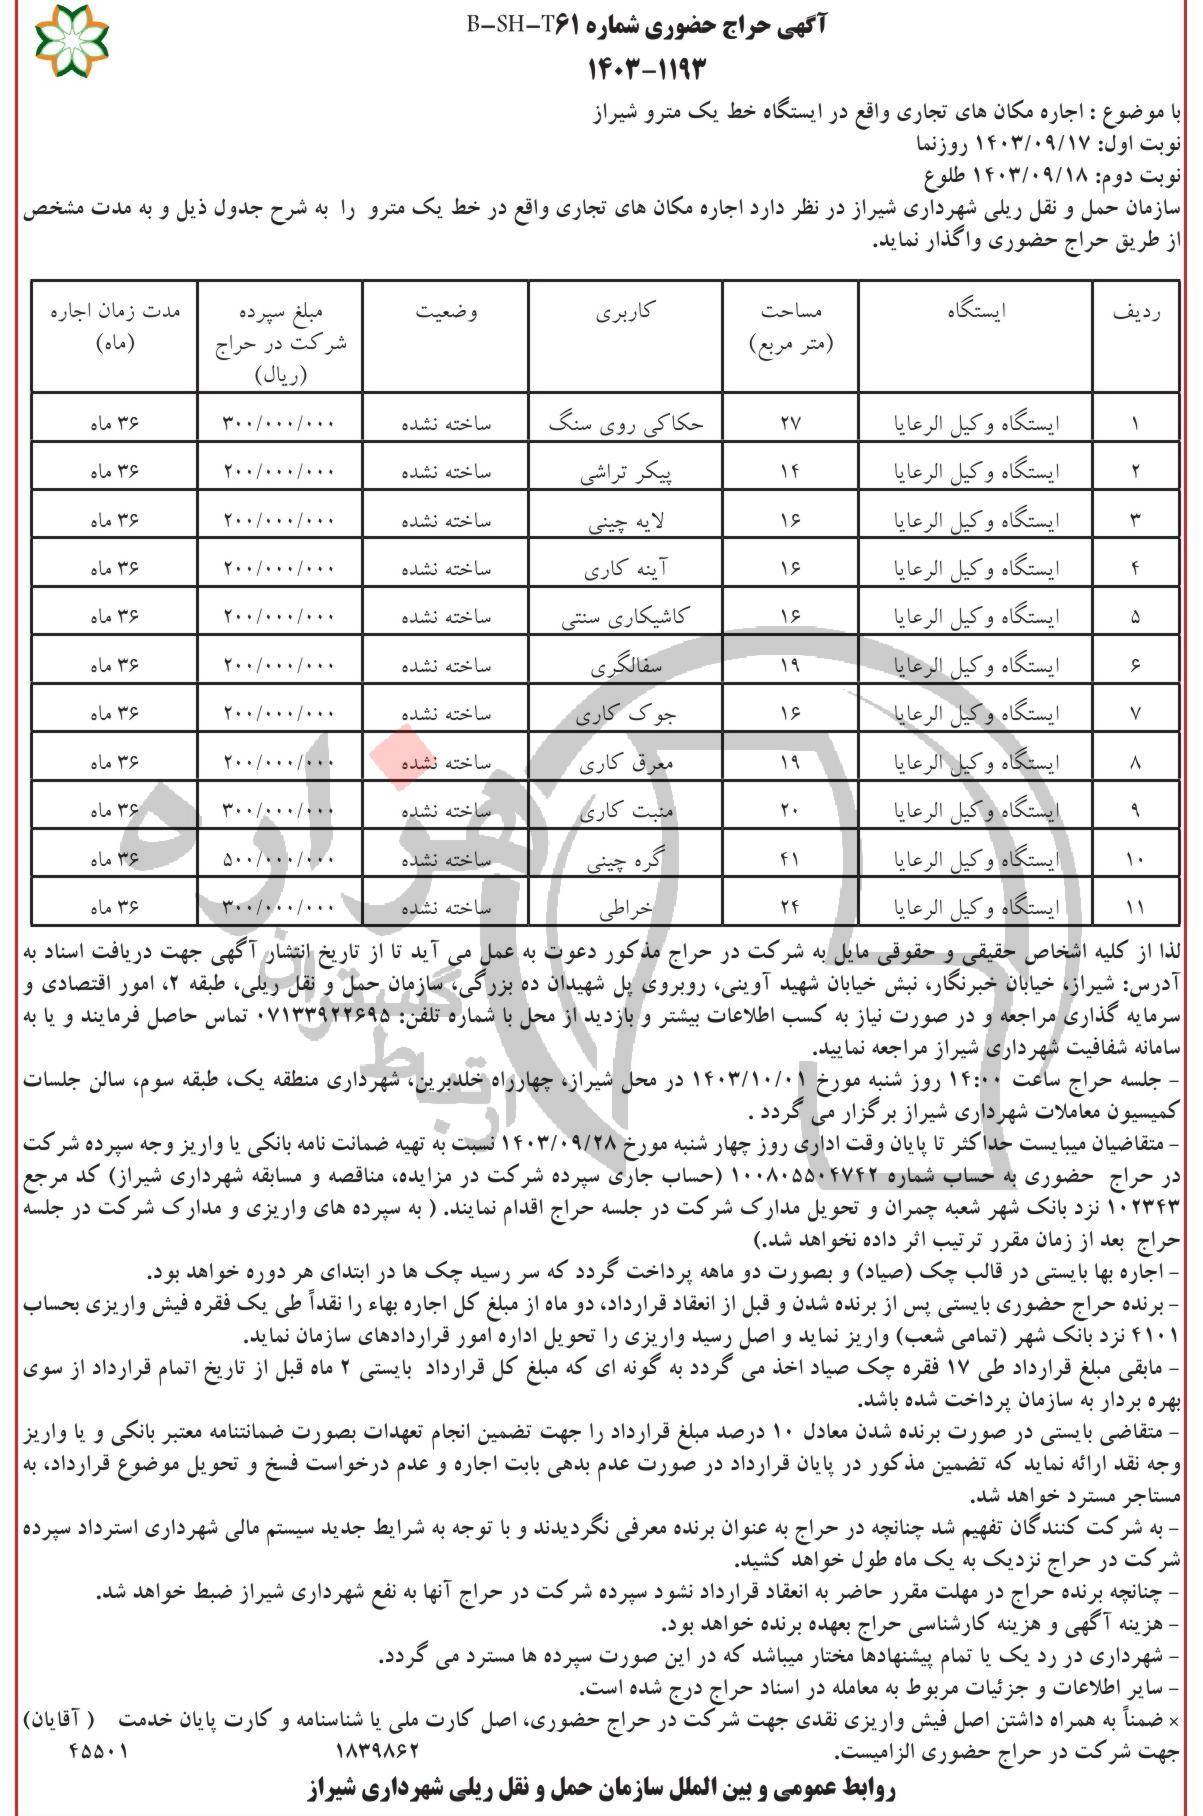 آگهی حراج حضوری شماره B-SH-T۶۱
۱۴۰۳-۱۱۹۳
با موضوع : اجاره مکان های تجاری واقع در ایستگاه خط یک مترو شیراز
نوبت اول: ۱۴۰۳/۰۹/۱۷ روزنما
نوبت دوم: ۱۴۰۳/۰۹/۱۸ طلوع
سازمان حمل و نقل ریلی شهرداری شیراز در نظر دارد اجاره مکان های تجاری واقع در خط یک مترو را به شرح جدول ذیل و به مدت مشخص
از طریق حراج حضوری واگذار نماید.
ردیف ایستگاه مساحت (متر مربع) کاربری وضعیت مبلغ سپرده شرکت در حراج (ریال) مدت زمان اجاره (ماه)
۱ ایستگاه وکیل الرعایا ۲۷ حکاکی روی سنگ ساخته نشده ۳۰۰/۰۰۰/۰۰۰ ۳۶ ماه
۲ ایستگاه وکیل الرعایا ۱۴ پیکر تراشی ساخته نشده ۲۰۰/۰۰۰/۰۰۰ ۳۶ ماه
۳ ایستگاه وکیل الرعایا ۱۶ لایه چینی ساخته نشده ۲۰۰/۰۰۰/۰۰۰ ۳۶ ماه
۴ ایستگاه وکیل الرعایا ۱۶ آینه کاری ساخته نشده ۲۰۰/۰۰۰/۰۰۰ ۳۶ ماه
۵ ایستگاه وکیل الرعایا ۱۶ کاشیکاری سنتی ساخته نشده ۲۰۰/۰۰۰/۰۰۰ ۳۶ ماه
۶ ایستگاه وکیل الرعایا ۱۹ سفالگری ساخته نشده ۲۰۰/۰۰۰/۰۰۰ ۳۶ ماه
۷ ایستگاه وکیل الرعایا ۱۶ جوک کاری ساخته نشده ۲۰۰/۰۰۰/۰۰۰ ۳۶ ماه
۸ ایستگاه وکیل الرعایا ۱۹ معرق کاری ساخته نشده ۲۰۰/۰۰۰/۰۰۰ ۳۶ ماه
۹ ایستگاه وکیل الرعایا ۲۰ منبت کاری ساخته نشده ۳۰۰/۰۰۰/۰۰۰ ۳۶ ماه
۱۰ ایستگاه وکیل الرعایا ۴۱ گره چینی ساخته نشده ۵۰۰/۰۰۰/۰۰۰ ۳۶ ماه
۱۱ ایستگاه وکیل الرعایا ۲۴ خراطی ساخته نشده ۳۰۰/۰۰۰/۰۰۰ ۳۶ ماه
لذا از کلیه اشخاص حقیقی و حقوقی مایل به شرکت در حراج مذکور دعوت به عمل می آید تا از تاریخ انتشار آگهی جهت دریافت اسناد به
آدرس: شیراز، خیابان خبرنگار، نبش خیابان شهید آوینی، روبروی پل شهیدان ده بزرگی، سازمان حمل و نقل ریلی، طبقه ۲، امور اقتصادی و
سرمایه گذاری مراجعه و در صورت نیاز به کسب اطلاعات بیشتر و بازدید از محل با شماره تلفن: ۰۷۱۳۳۹۲۲۶۹۵ تماس حاصل فرمایند و یا به
سامانه شفافیت شهرداری شیراز مراجعه نمایید.
- جلسه حراج ساعت ۱۴:۰۰ روز شنبه مورخ ۱۴۰۳/۱۰/۰۱ در محل شیراز، چهارراه خلدبرین، شهرداری منطقه یک، طبقه سوم، سالن جلسات
کمیسیون معاملات شهرداری شیراز برگزار می گردد .
- متقاضیان میبایست حداکثر تا پایان وقت اداری روز چهار شنبه مورخ ۱۴۰۳/۰۹/۲۸ نسبت به تهیه ضمانت نامه بانکی یا واریز وجه سپرده شرکت
در حراج حضوری به حساب شماره ۱۰۰۸۰۵۵۰۴۷۴۲ (حساب جاری سپرده شرکت در مزایده، مناقصه و مسابقه شهرداری شیراز) کد مرجع
۱۰۲۳۴۳ نزد بانک شهر شعبه چمران و تحویل مدارک شرکت در جلسه حراج اقدام نمایند. ( به سپرده های واریزی و مدارک شرکت در جلسه
حراج بعد از زمان مقرر ترتیب اثر داده نخواهد شد.)
- اجاره بها بایستی در قالب چک (صیاد) و بصورت دو ماهه پرداخت گردد که سر رسید چک ها در ابتدای هر دوره خواهد بود.
- برنده حراج حضوری بایستی پس از برنده شدن و قبل از انعقاد قرارداد، دو ماه از مبلغ کل اجاره بهاء را نقداً طی یک فقره فیش واریزی بحساب
۴۱۰۱ نزد بانک شهر (تمامی شعب) واریز نماید و اصل رسید واریزی را تحویل اداره امور قراردادهای سازمان نماید.
- مابقی مبلغ قرارداد طی ۱۷ فقره چک صیاد اخذ می گردد به گونه ای که مبلغ کل قرارداد بایستی ۲ ماه قبل از تاریخ اتمام قرارداد از سوی
بهره بردار به سازمان پرداخت شده باشد.
- متقاضی بایستی در صورت برنده شدن معادل ۱۰ درصد مبلغ قرارداد را جهت تضمین انجام تعهدات بصورت ضمانتنامه معتبر بانکی و یا واریز
وجه نقد ارائه نماید که تضمین مذکور در پایان قرارداد در صورت عدم بدهی بابت اجاره و عدم درخواست فسخ و تحویل موضوع قرارداد، به
مستاجر مسترد خواهد شد.
- به شرکت کنندگان تفهیم شد چنانچه در حراج به عنوان برنده معرفی نگردیدند و با توجه به شرایط جدید سیستم مالی شهرداری استرداد سپرده
شرکت در حراج نزدیک به یک ماه طول خواهد کشید.
- چنانچه برنده حراج در مهلت مقرر حاضر به انعقاد قرارداد نشود سپرده شرکت در حراج آنها به نفع شهرداری شیراز ضبط خواهد شد.
- هزینه آگهی و هزینه کارشناسی حراج بعهده برنده خواهد بود.
- شهرداری در رد یک یا تمام پیشنهادها مختار میباشد که در این صورت سپرده ها مسترد می گردد.
- سایر اطلاعات و جزئیات مربوط به معامله در اسناد حراج درج شده است.
× ضمناً به همراه داشتن اصل فیش واریزی نقدی جهت شرکت در حراج حضوری، اصل کارت ملی یا شناسنامه و کارت پایان خدمت ( آقایان)
جهت شرکت در حراج حضوری الزامیست. ۱۸۳۹۸۶۲ ۴۵۵۰۱
روابط عمومی و بین الملل سازمان حمل و نقل ریلی شهرداری شیراز
هزاره